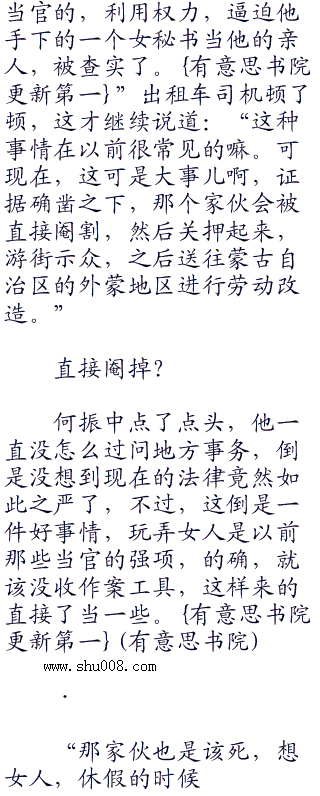 当官的，利用权力，逼迫他
手下的一个女秘书当他的亲
人，被查实了。{有意思书院
更新第一}”出租车司机顿了
顿，这才继续说道：“这种
事情在以前很常见的嘛。可
现在，这可是大事儿啊，证
据确凿之下，那个家伙会被
直接阉割，然后关押起来，
游街示众，之后送往蒙古自
治区的外蒙地区进行劳动改
造。”
直接阉掉？
何振中点了点头，他一
直没怎么过问地方事务，倒
是没想到现在的法律竟然如
此之严了，不过，这倒是一
件好事情，玩弄女人是以前
那些当官的强项，的确，就
该没收作案工具，这样来的
直接了当一些。{有意思书院
更新第一}(有意思书院)
www.shu008.com
.
“那家伙也是该死，想
女人，休假的时候